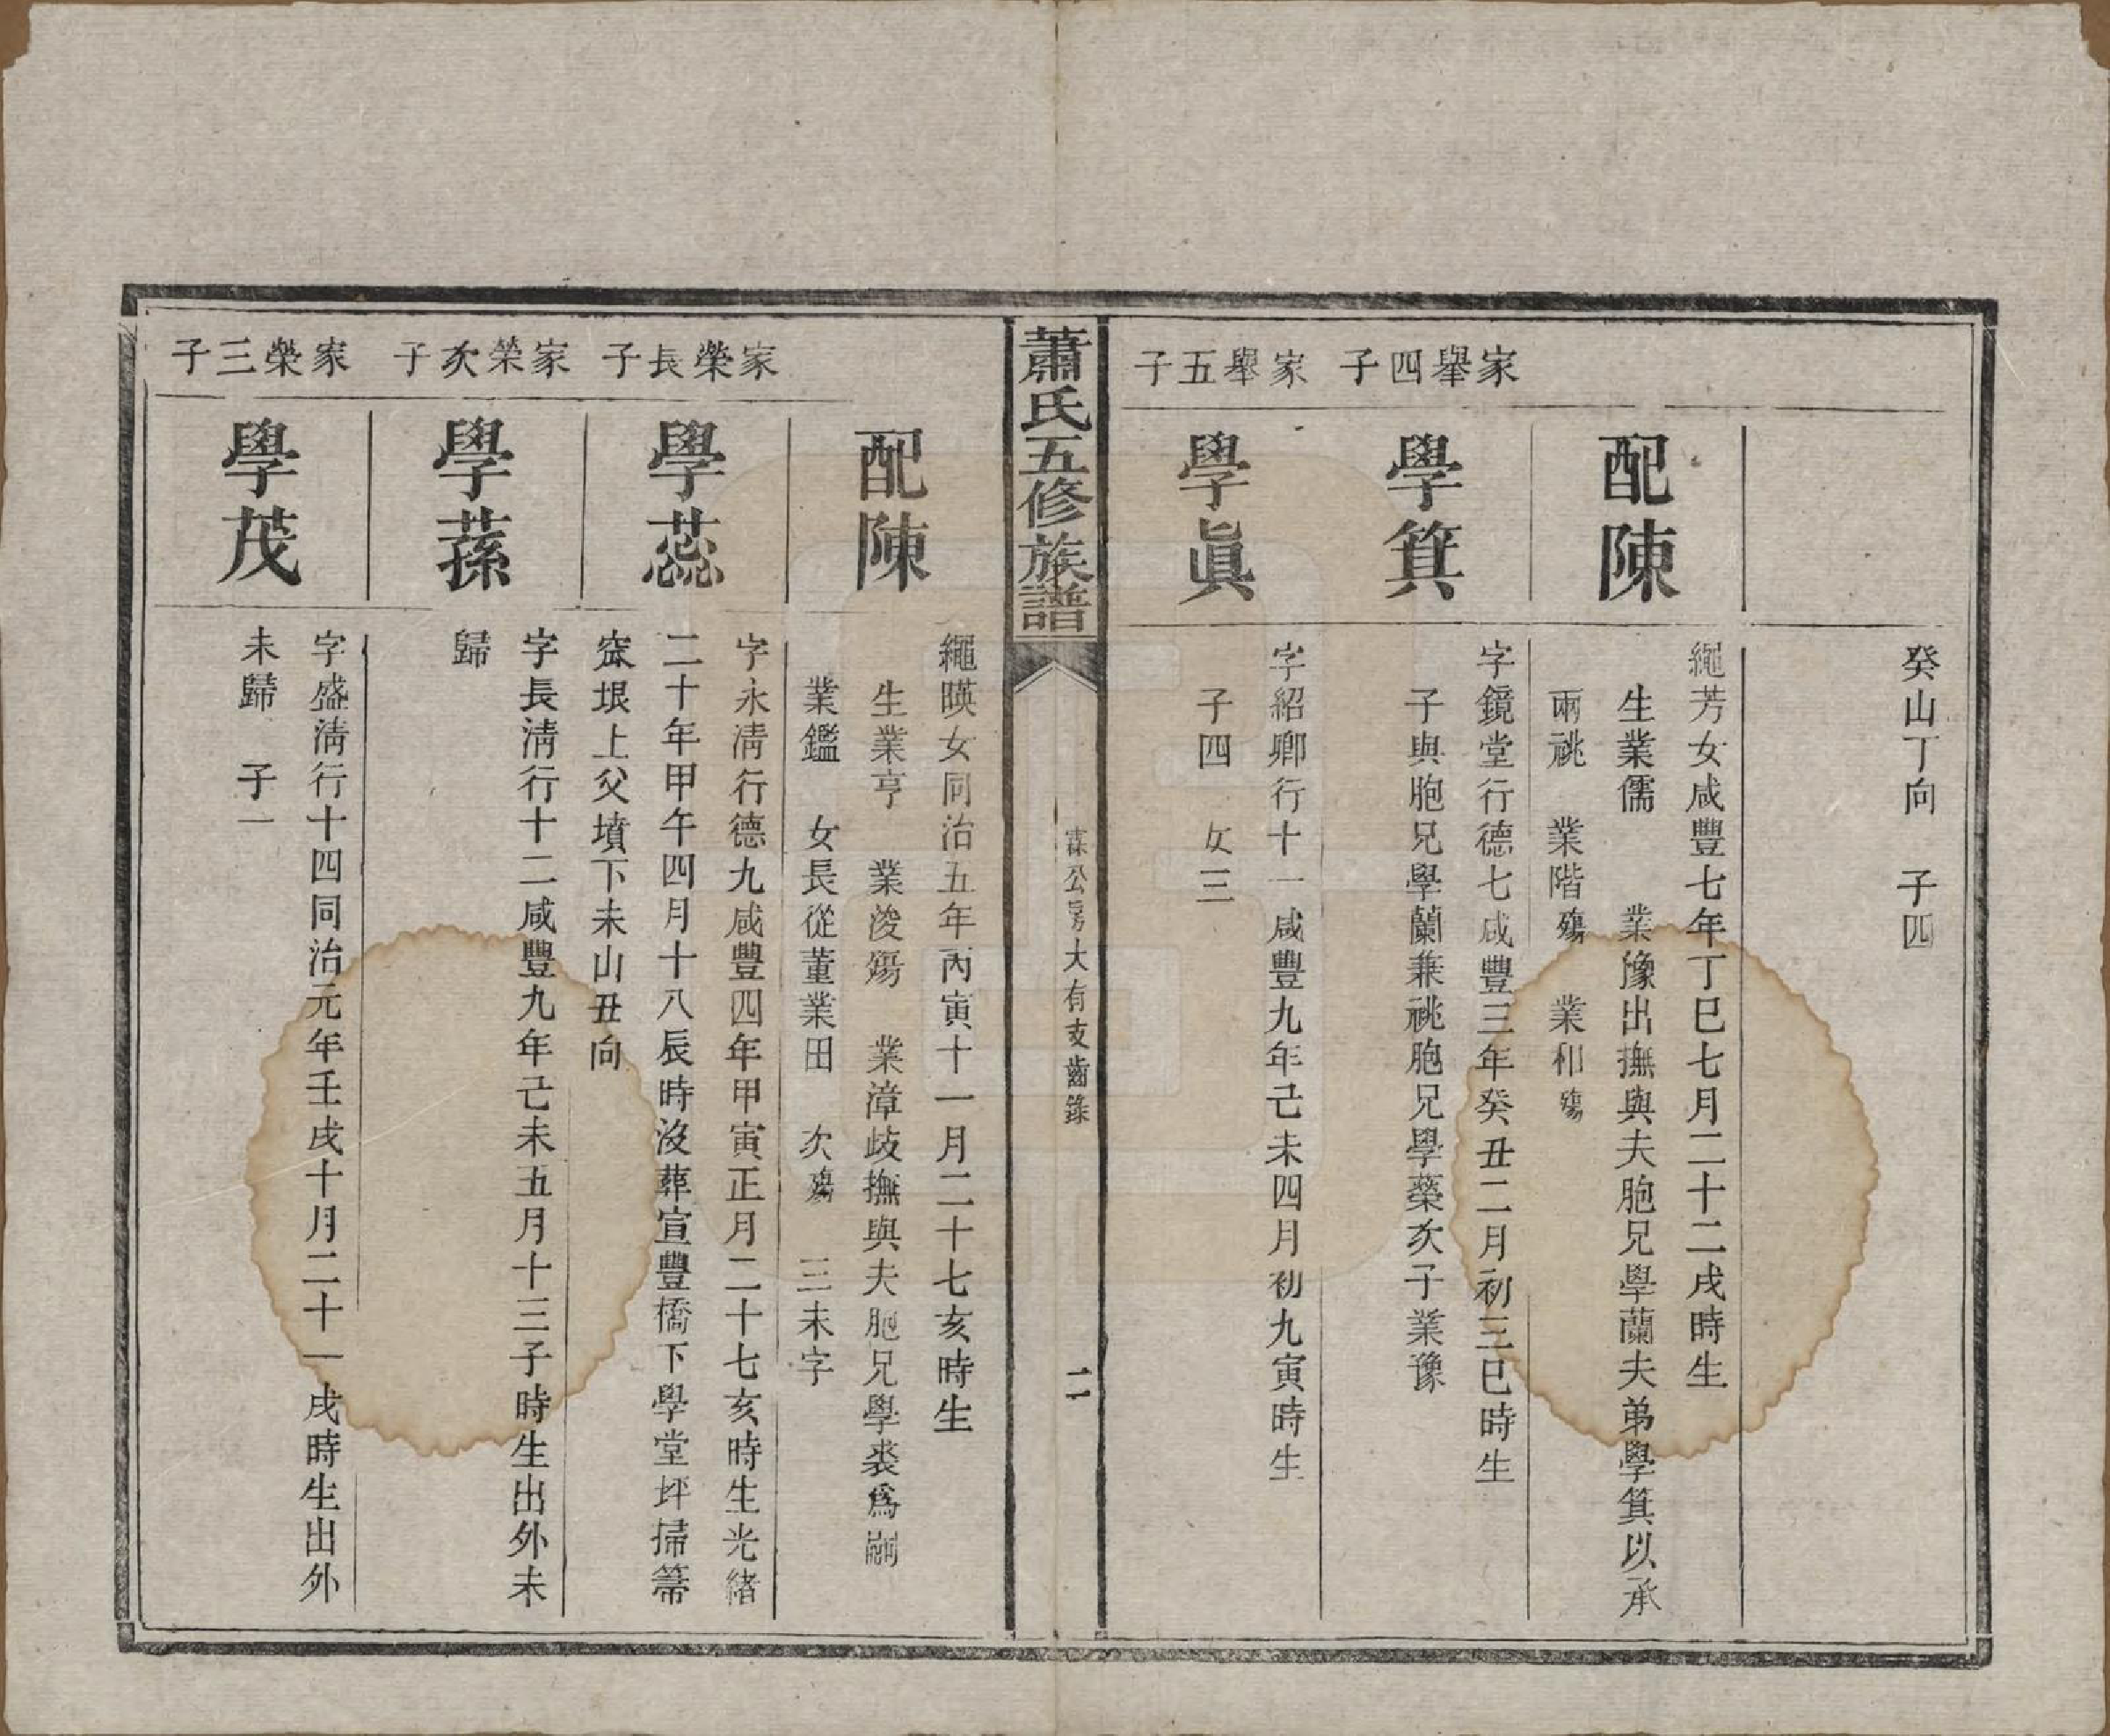 癸山丁向　子四
配陳
繩芳女咸豐七年丁巳七月二十二戌時生
生業儒　業豫出撫與夫胞兄學蘭夫弟學箕以承
兩祧　業階殤　業和殤
家舉四子
學箕
字鏡堂行德七咸豐三年癸丑二月初三巳時生
子與胞兄學蘭兼祧胞兄學蘂次子業豫
家舉五子
學眞
字紹卿行十一咸豐九年己未四月初九寅時生
子四　女三
蕭氏五修族譜
公房大有支齒錄
二
配陳
繩暎女同治五年丙寅十一月二十七亥時生
生業亨　業浚殤　業漳歧撫與夫胞兄學裘爲嗣
業鑑　女長從董業田　次殤　三未字
家榮長子
學蕊
字永淸行德九咸豐四年甲寅正月二十七亥時生光緒
二十年甲午四月十八辰時沒葬宣豐橋下學堂坪掃箒
垠上父墳下未山丑向
家榮次子
學蓀
字長淸行十二咸豐九年己未五月十三子時生出外未
歸
家榮三子
學茂
字盛淸行十四同治元年壬戌十月二十一戌時生出外
未歸　子一